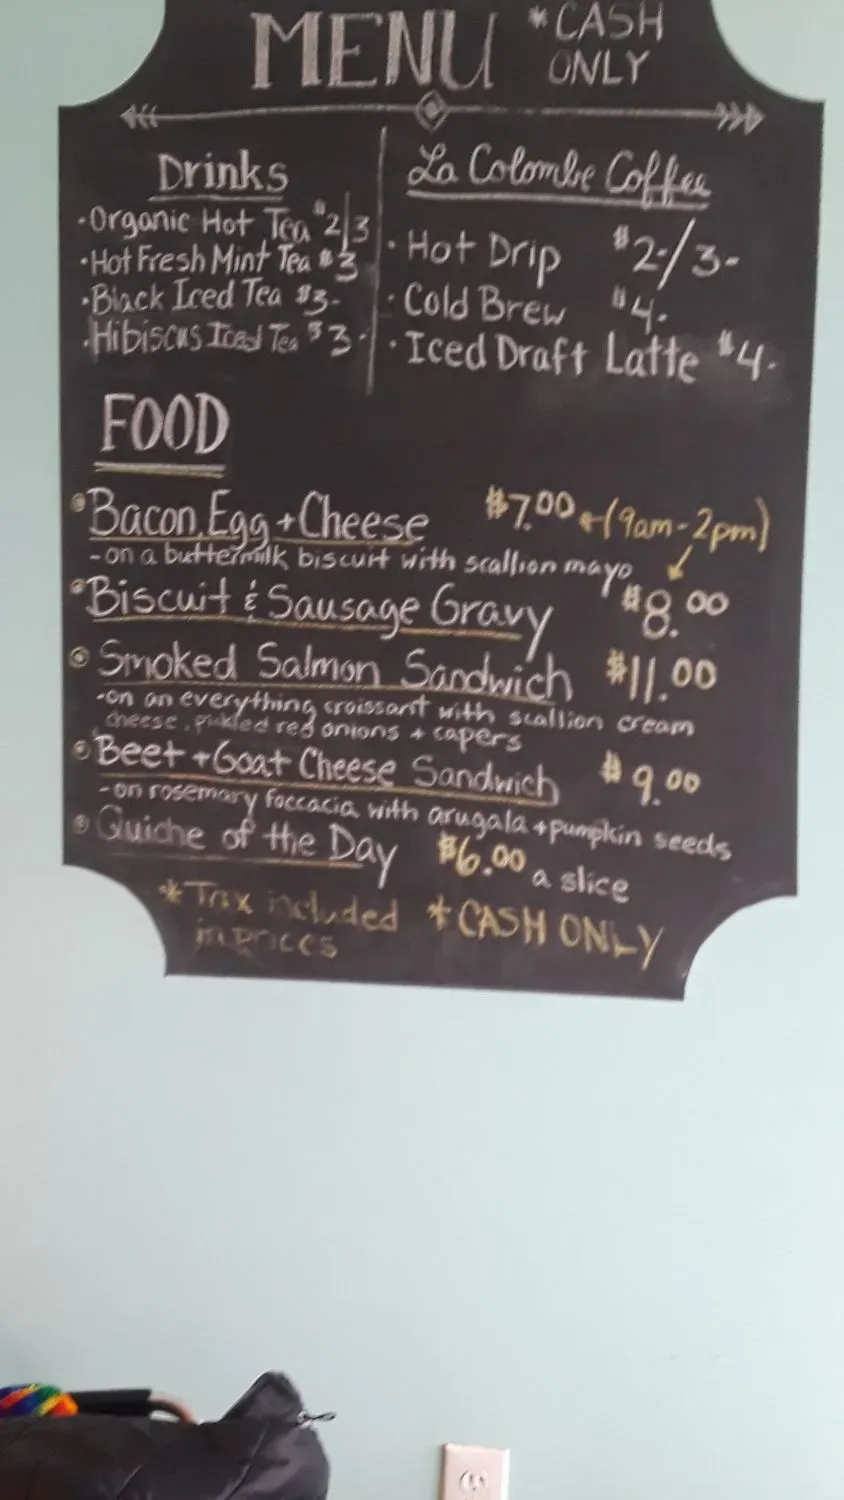 MENU
*CASH
ONLY
Drinks
·Organic Hot Tea $2|3
·Hot Fresh Mint Tea $3
·Black Iced Tea $3-
·Hibiscus Iced Tea $3-
La Colombe Coffee
·Hot Drip $2-/3-
·Cold Brew $4-
·Iced Draft Latte $4-
FOOD
Bacon, Egg + Cheese $7.00 ←(9am-2pm)
-on a buttermilk biscuit with scallion mayo
Biscuit & Sausage Gravy $8.00
Smoked Salmon Sandwich $11.00
-on an everything croissant with scallion cream
cheese, pickled red onions + capers
Beet + Goat Cheese Sandwich $9.00
-on rosemary foccacia with arugala + pumpkin seeds
Quiche of the Day $6.00 a slice
*Tax included
in prices
*CASH ONLY